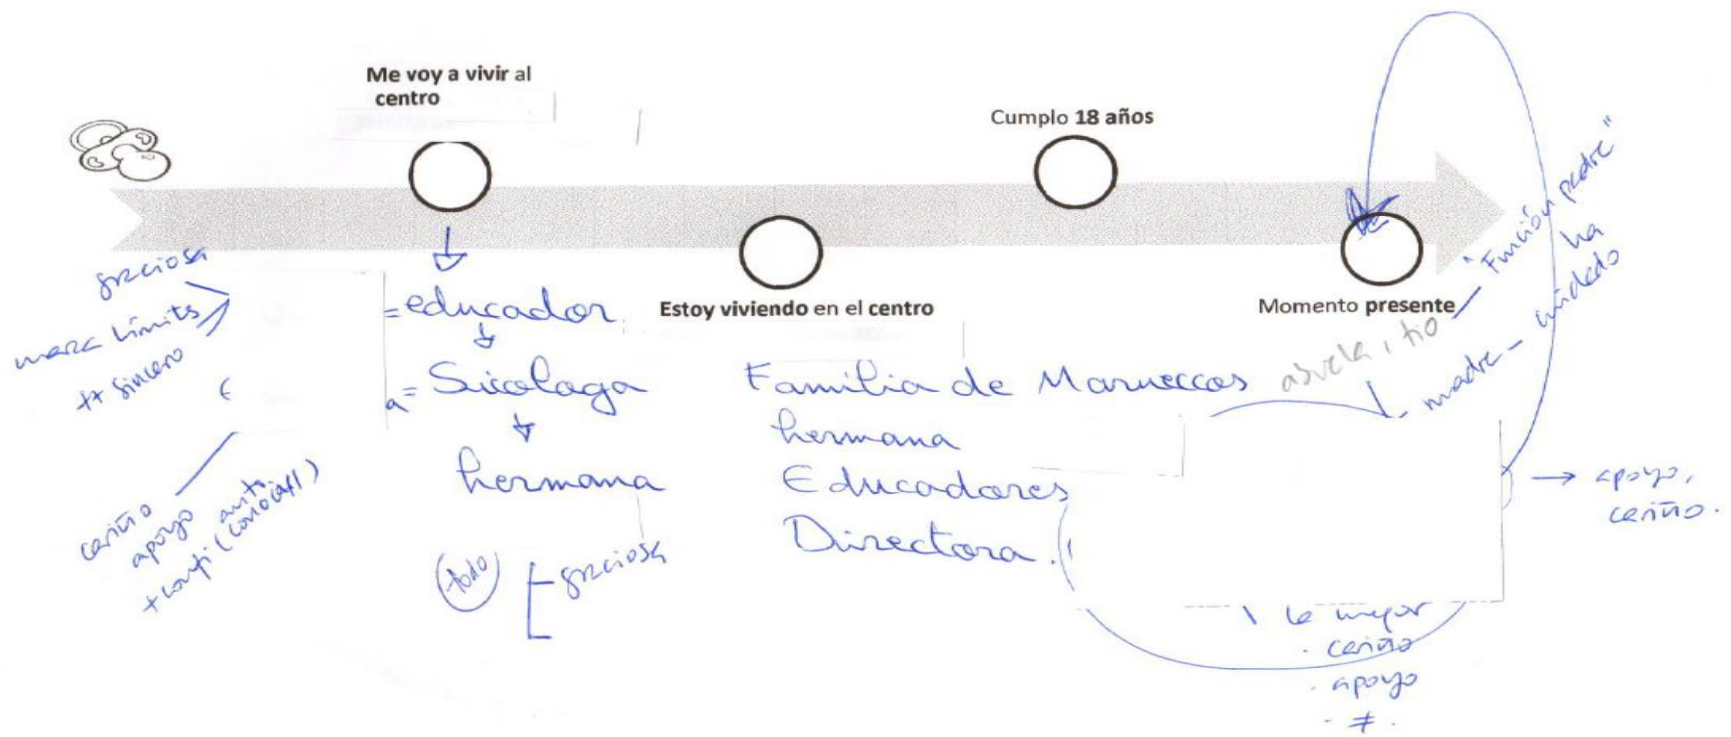 Me voy a vivir al
centro
Cumplo 18 años
Estoy viviendo en el centro
Momento presente
graciosa
marca límits
++ sincero
cariño
apoyo
= educador
a= Sicologa
hermana
todo
graciosa
Familia de Marueccos
hermana
Educadores
Directora.
abuela, tio
"Función padre"
madre - ha
cuidado
→ apoyo,
cariño.
la mejor
· cariño
· apoyo
- ≠.